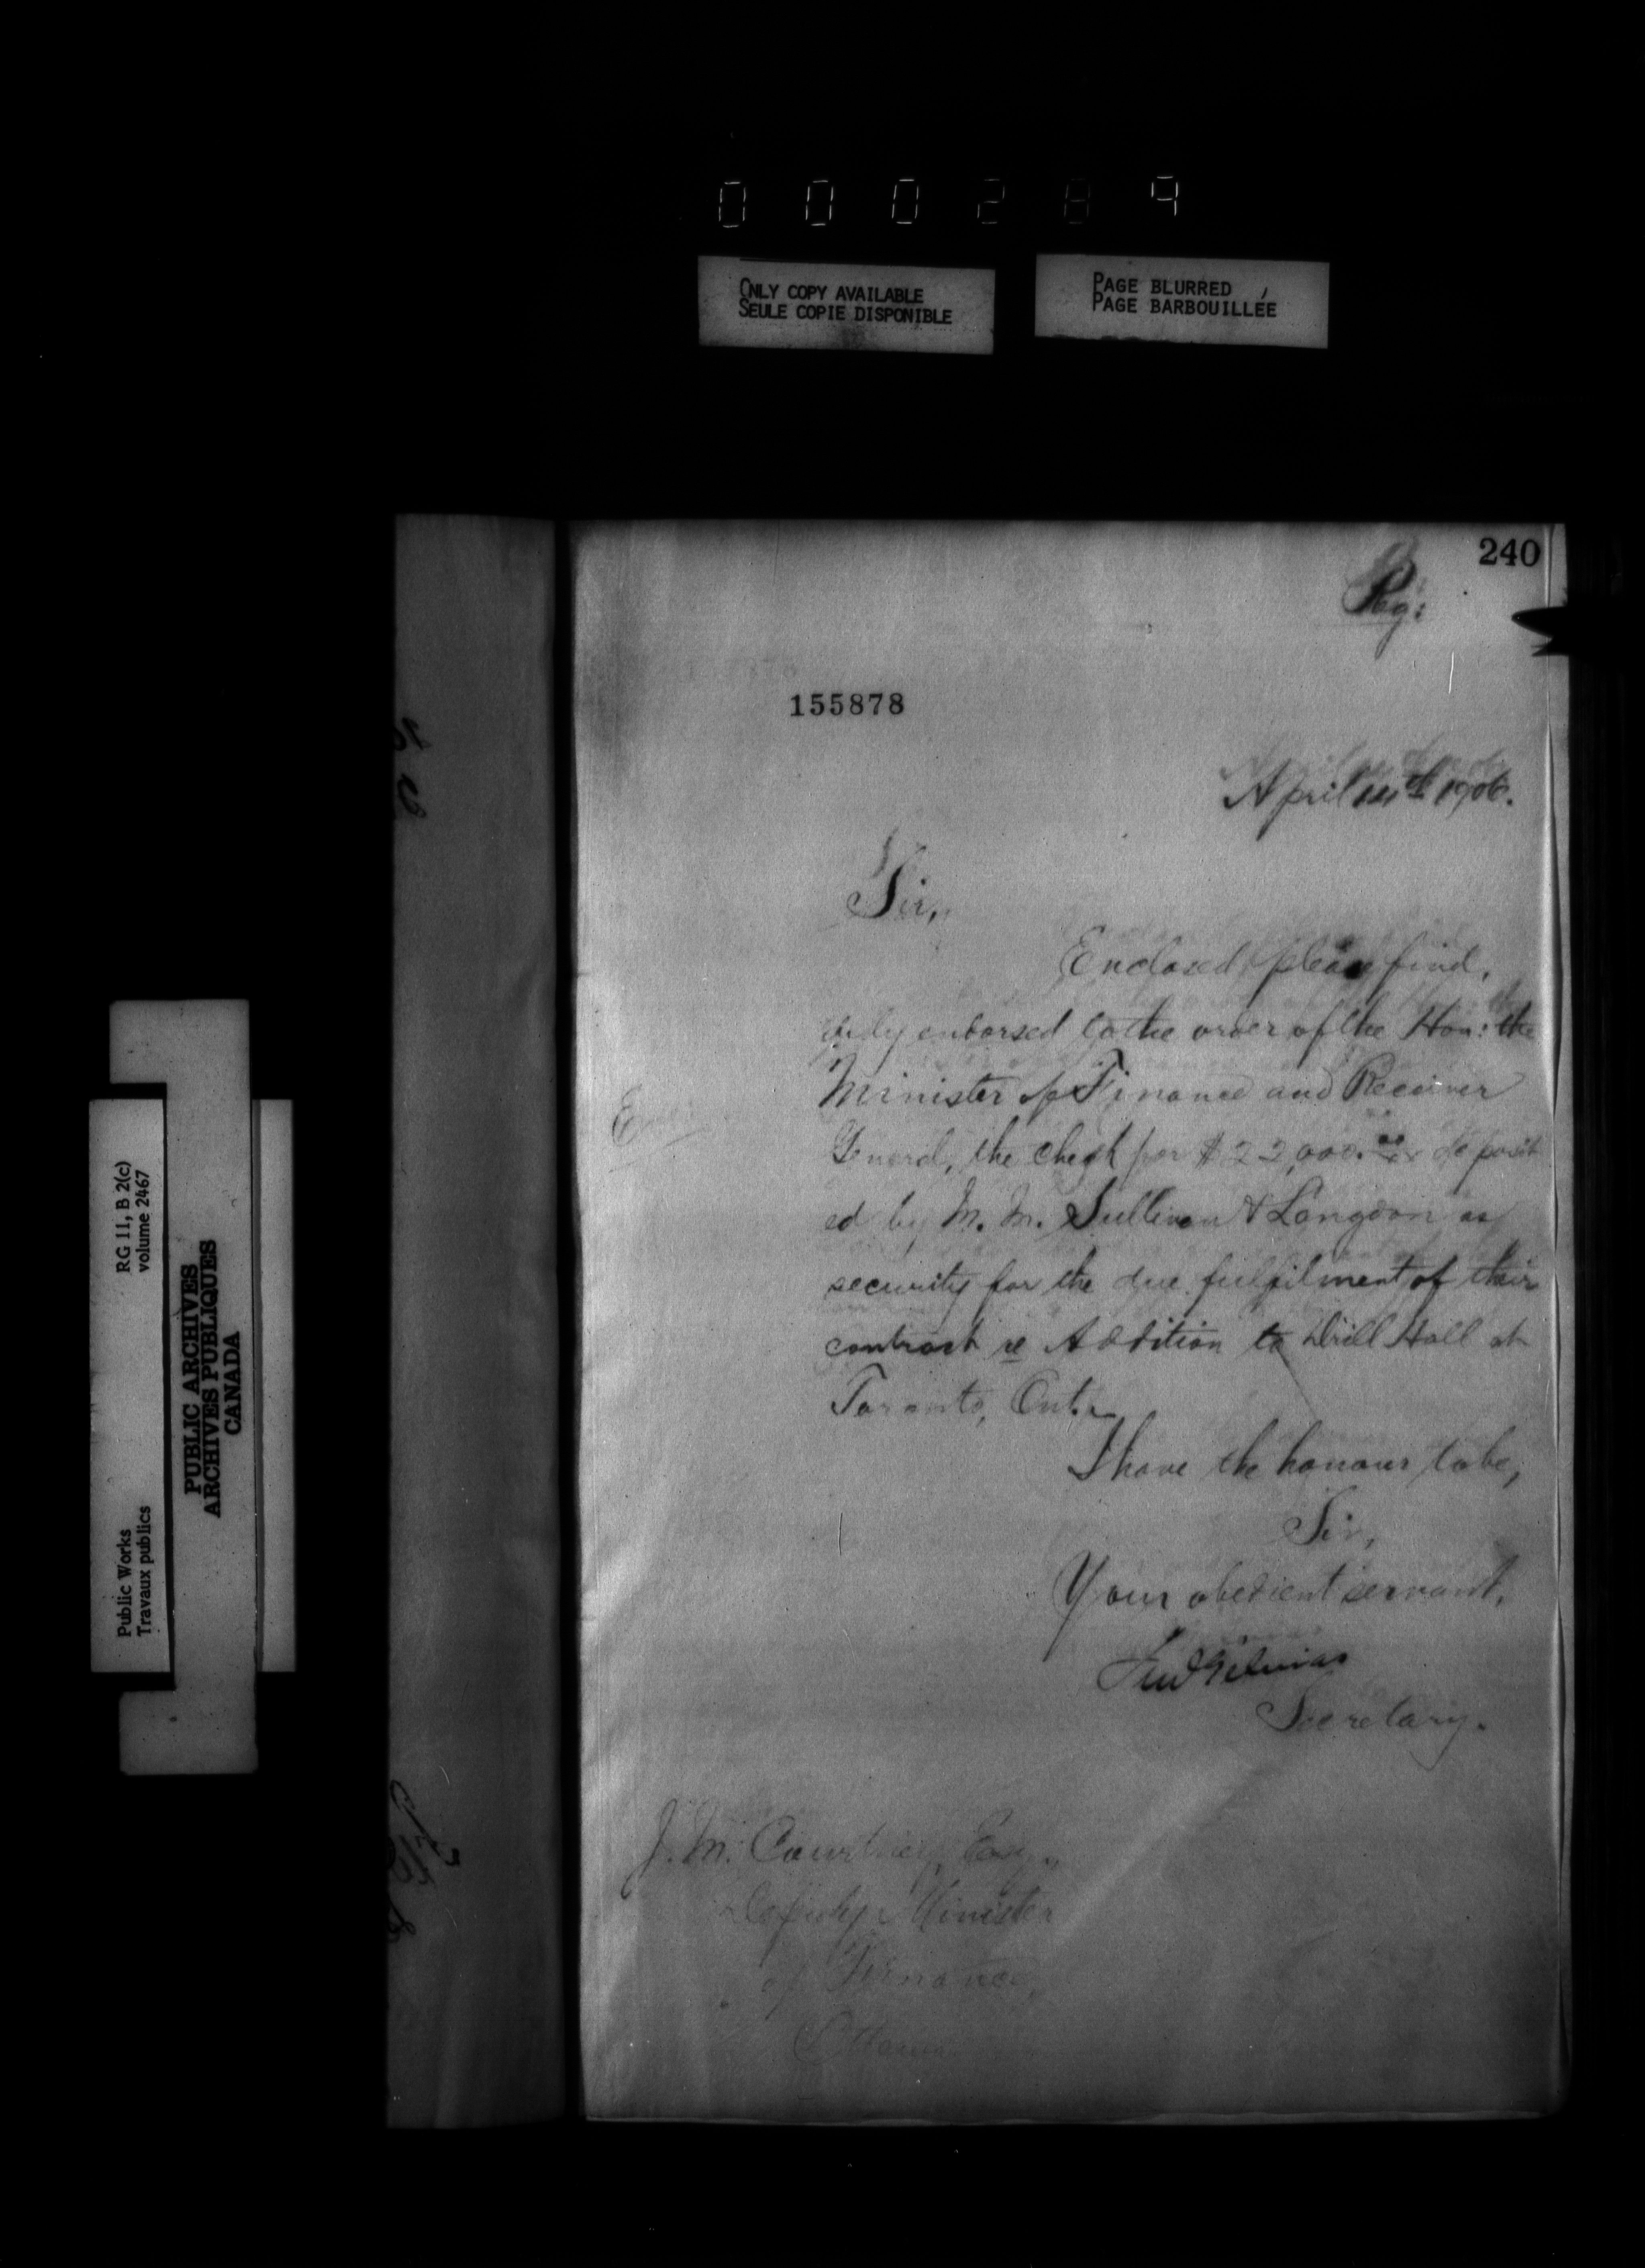 000289
ONLY COPY AVAILABLE
SEULE COPIE DISPONIBLE
PAGE BLURRED
PAGE BARBOUILLÉE
240
Reg:
155878
April 14th 1906.
Sir,
Enclosed please find,
duly endorsed to the order of the Hon: the
Minister of Finance and Receiver
General, the check for $22,000.00 deposit
ed by M. M. Sullivan & Langdon as
security for the due fulfilment of their
contract re Addition to Drill Hall at
Toronto, Ont.
I have the honour to be,
Sir,
Your obedient servant,
Fred Gélinas
Secretary.
J. M. Courtney, Esq.,
Deputy Minister
of Finance,
Ottawa
RG 11, B 2(c)
volume 2467
Public Works
Travaux publics
PUBLIC ARCHIVES
ARCHIVES PUBLIQUES
CANADA